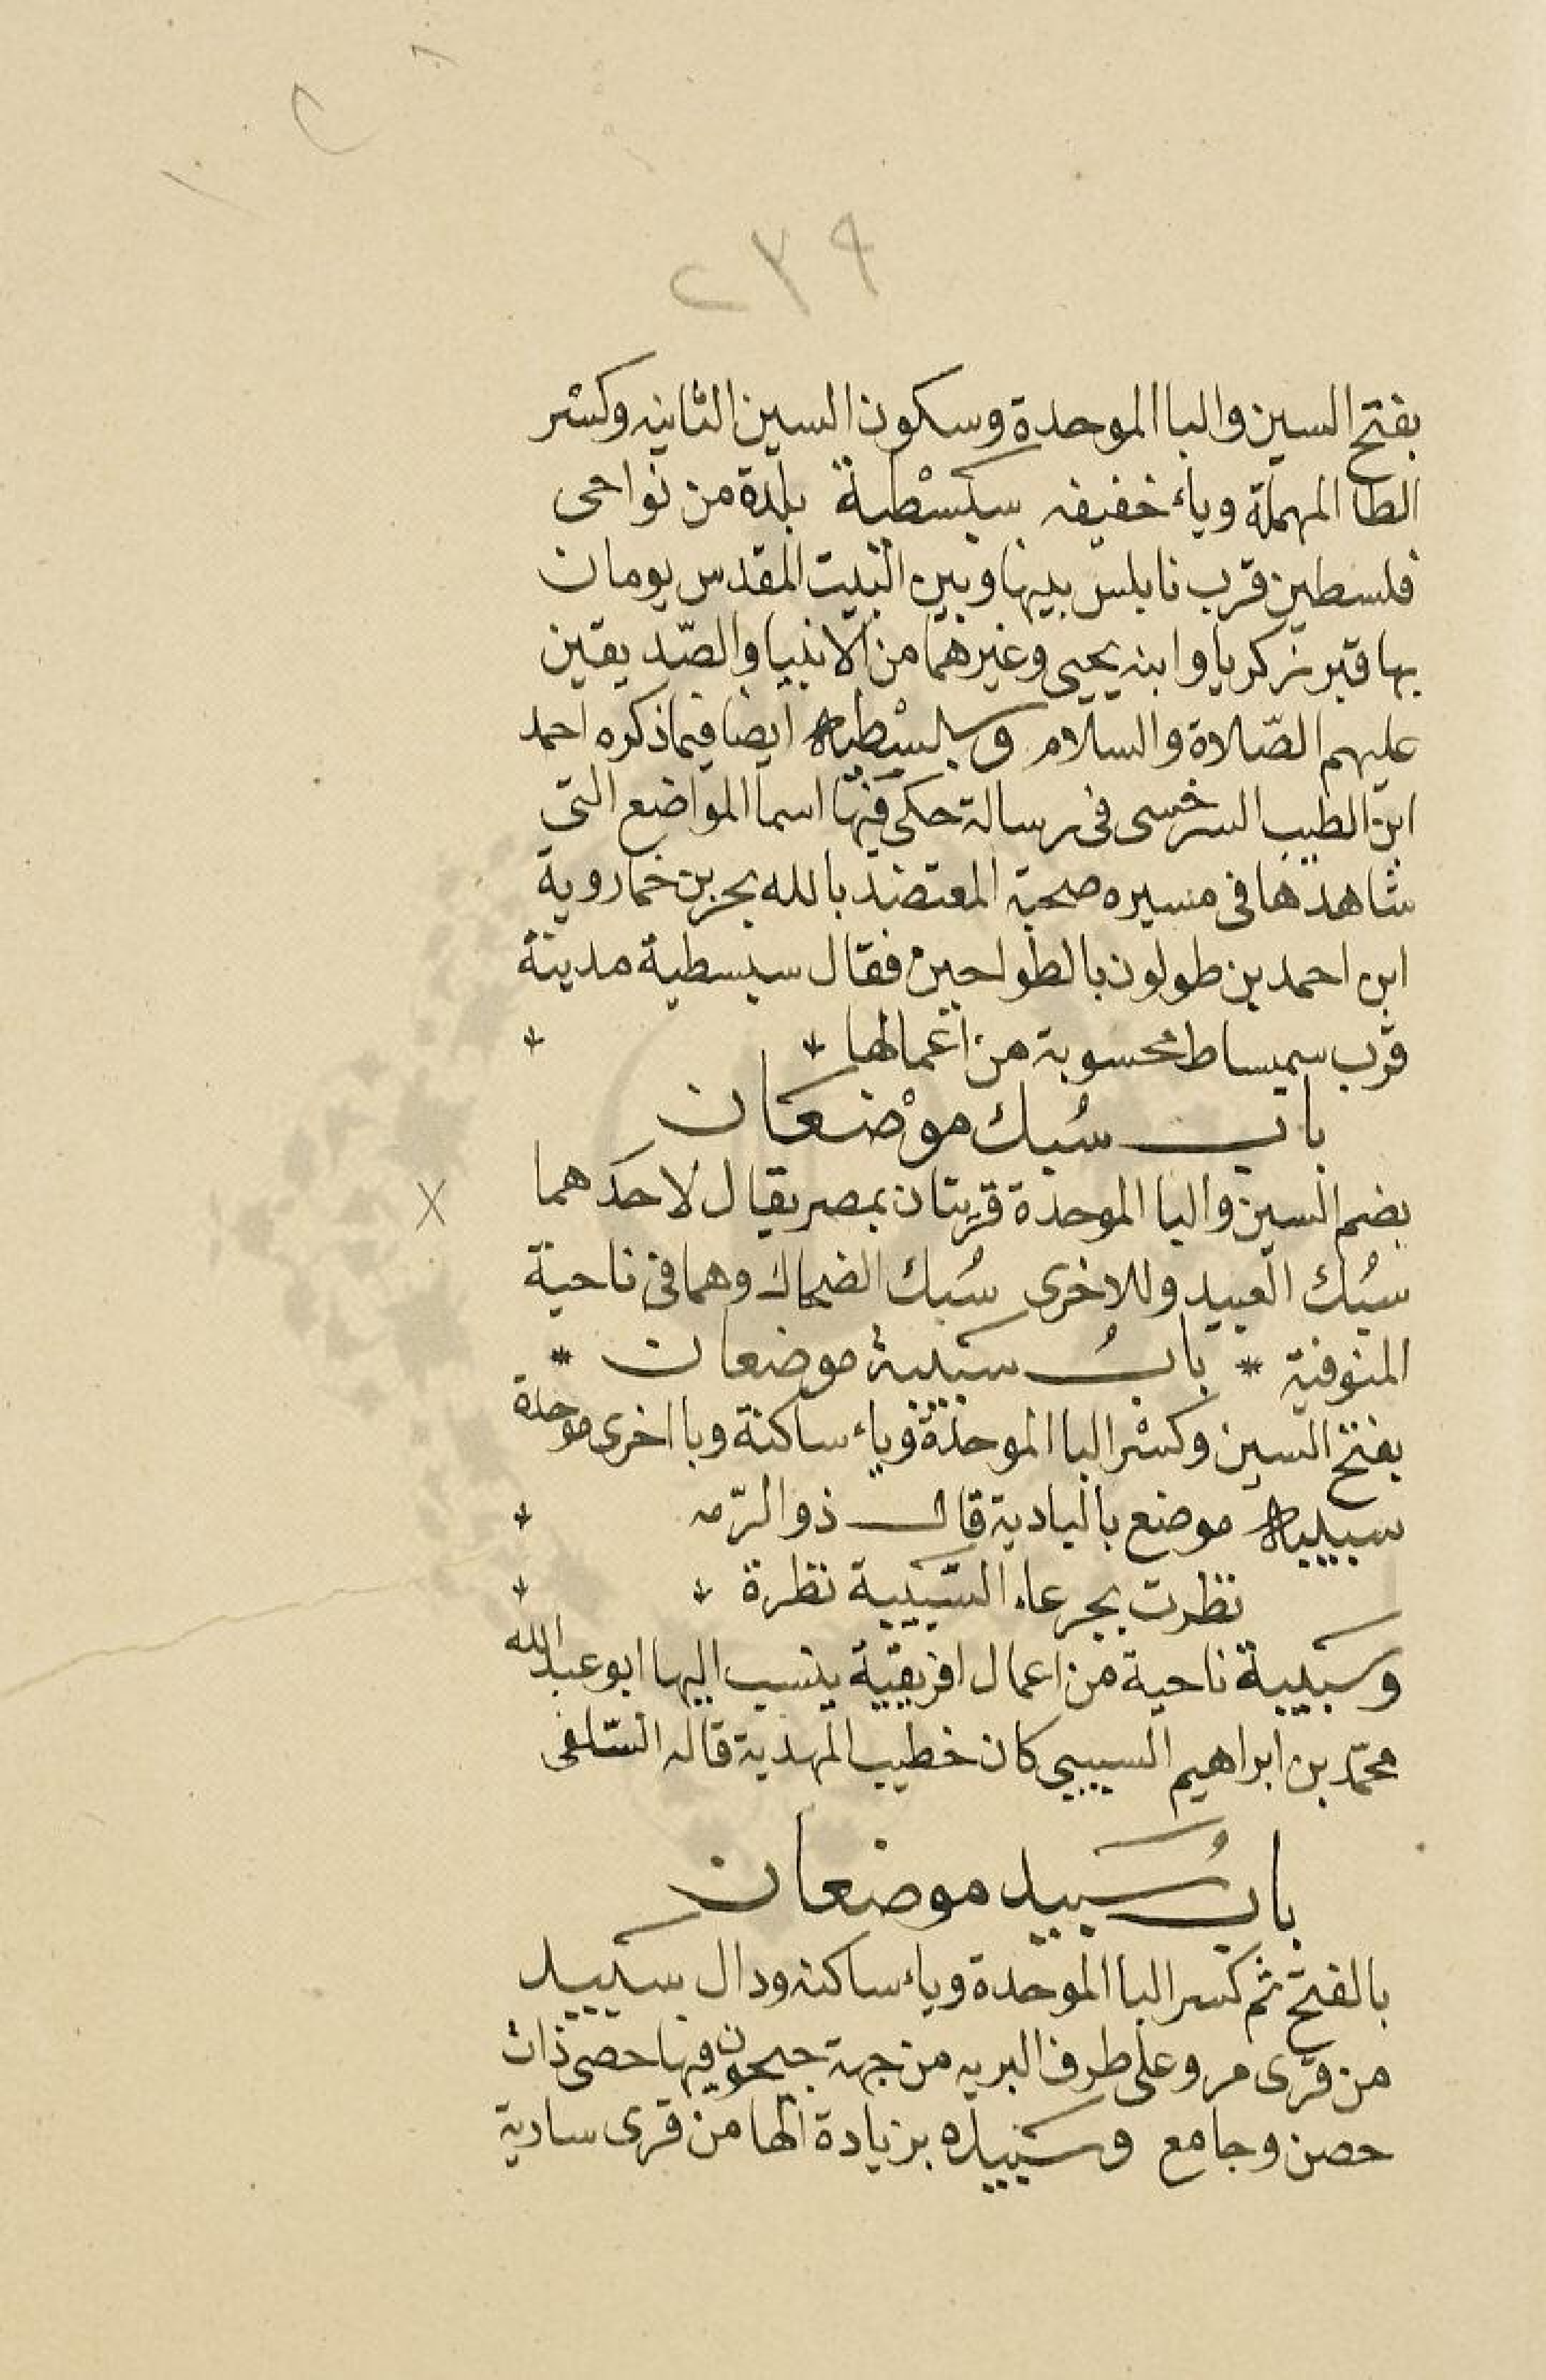 ٢٣٩
بفتح السين والبا الموحدة وسكون السين الثانيه وكسْر
الطا المهملة وياء خفيفه سبسْطية بلدة من نواحى
فلسطين قرب نابلس بينها وبين البيت المقدس يومان
بها قبر زكريا وابنه يحيى وغيرهما من الانبيا والصّديقين
عليهم الصّلاة والسلام وسبسْطيه ايضا فيما ذكره احمد
ابن الطيب السرخسى فى رسالة حكى فيها اسما المواضع التى
شاهدها فى مسيره صحبة المعتضد بالله بحرب خماروية
ابن احمد بن طولون بالطواحين فقال سبسطية مدينة
قرب سميساط محسوبة من اعمالها
باب سُبك موْضعان
بضم السين والبا الموحدة قريتان بمصر يقال لاحدهما
سُبك العبيد وللاخرى سُبك الضحاك وهما فى ناحية
المنوفية * بابُ سَبيبة موضعان *
بفتح السين وكسْر البا الموحدة وياء ساكنة وبا اخرى موحدة
سبيبه موضع بالبادية قال ذو الرّمه
نظرت بجرعاء السَّبيبة نظرة
وسَبيبة ناحية من اعمال افريقية ينسب اليها ابو عبد الله
محمّد بن ابراهيم السبيبي كان خطيب المهدية قاله السّلفى
بابُ سَبيد موضعان
بالفتح ثم كسر البا الموحدة وياء ساكنه ودال سَبيد
من قرى مرو على طرف البريه من جهة جيحون فيها حصى ذات
حصن وجامع وسَبيده بزيادة الها من قرى سارية